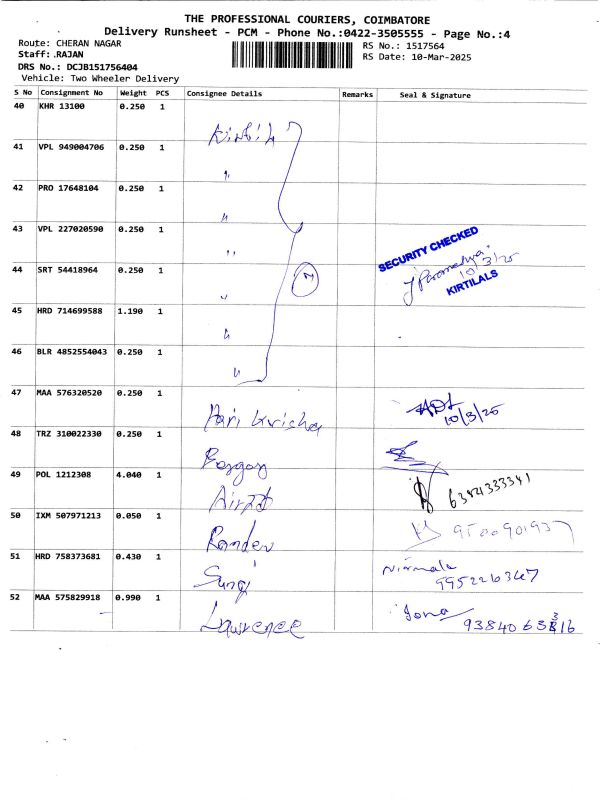 THE PROFESSIONAL COURIERS, COIMBATORE
Delivery Runsheet - PCM - Phone No.:0422-3505555 - Page No.:4
Route: CHERAN NAGAR
RS No.: 1517564
Staff: .RAJAN
RS Date: 10-Mar-2025
DRS No.: DCJB151756404
Vehicle: Two Wheeler Delivery
S No Consignment No Weight PCS Consignee Details Remarks Seal & Signature
40 KHR 13100 0.250 1
41 VPL 949004706 0.250 1
42 PRO 17648104 0.250 1
43 VPL 227020590 0.250 1
SECURITY CHECKED
44 SRT 54418964 0.250 1
10/3/25
KIRTILALS
45 HRD 714699588 1.190 1
46 BLR 4852554043 0.250 1
47 MAA 576320520 0.250 1
Hari krisha
10/3/25
48 TRZ 310022330 0.250 1
49 POL 1212308 4.040 1
6384333341
50 IXM 507971213 0.050 1
51 HRD 758373681 0.430 1
Nirmala
9952210367
52 MAA 575829918 0.990 1
Lawrence